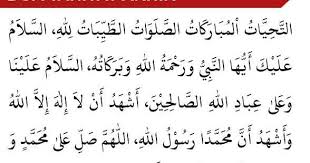 التَّحِيَّاتُ المُبَارَكَاتُ الصَّلَوَاتُ الطَّيِّبَاتُ لِلّٰهِ، السَّلَامُ
عَلَيْكَ أَيُّهَا النَّبِيُّ وَرَحْمَةُ اللهِ وَبَرَكَاتُهُ، السَّلَامُ عَلَيْنَا
وَعَلىٰ عِبَادِ اللهِ الصَّالِحِيْنَ، أَشْهَدُ أَنْ لَا إِلٰهَ إِلَّا اللهُ
وَأَشْهَدُ أَنَّ مُحَمَّدًا رَسُوْلُ اللهِ، اللّٰهُمَّ صَلِّ عَلىٰ مُحَمَّدٍ وَ